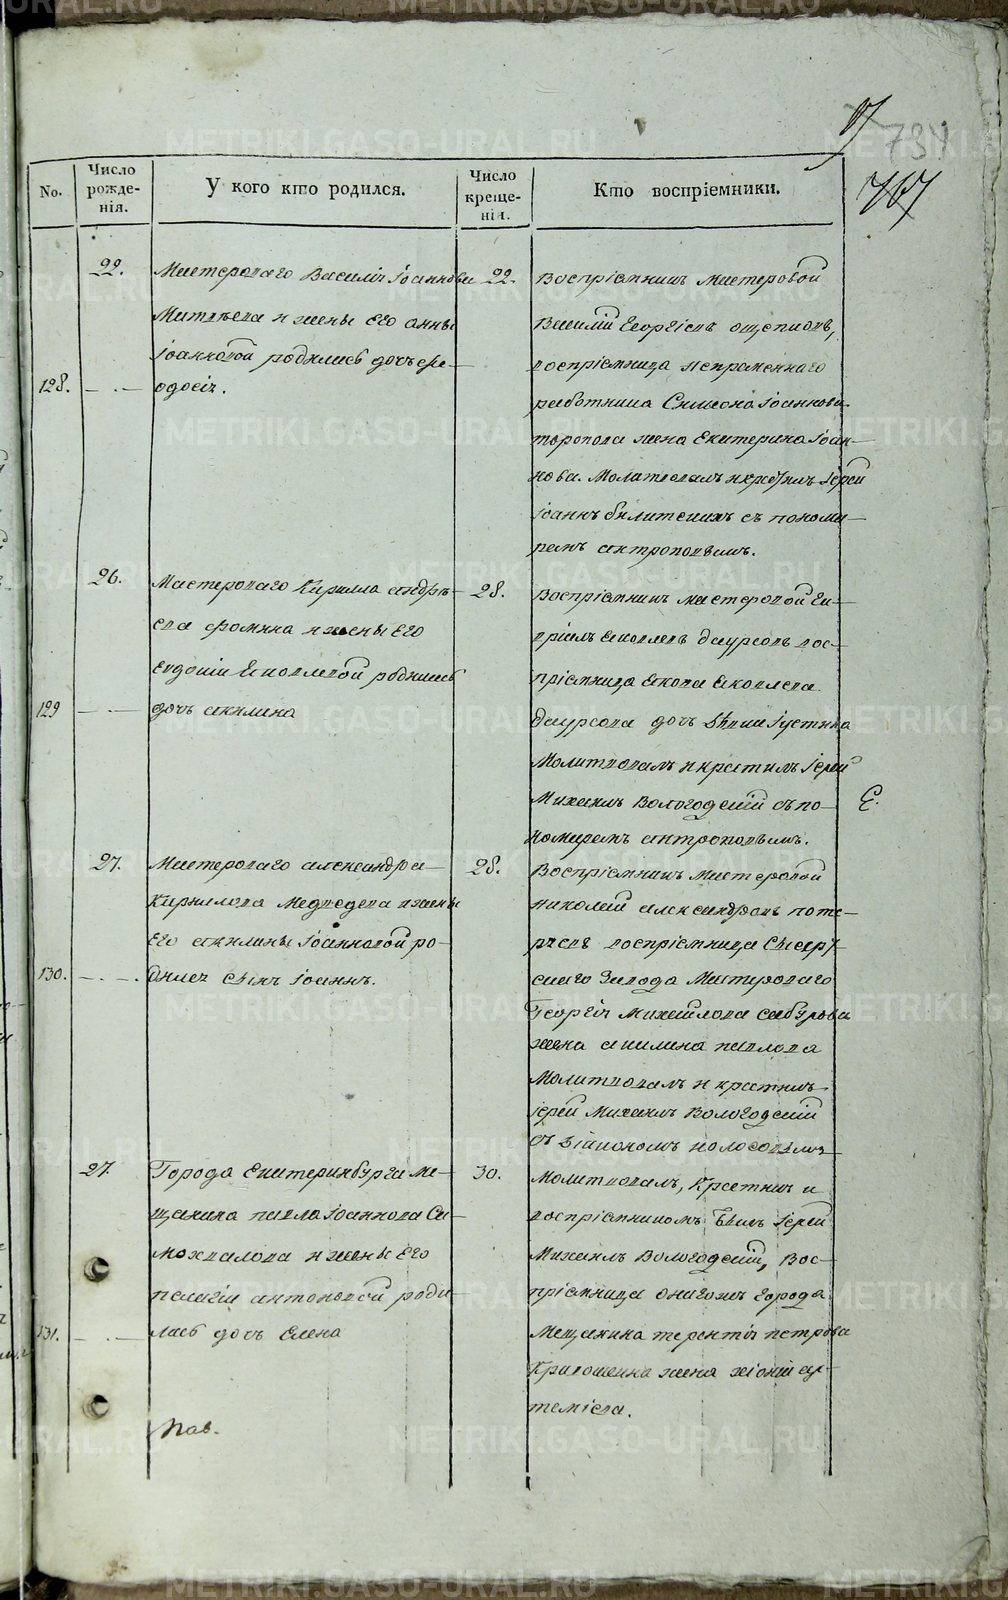 734
767
No.
Число рожденія.
У кого кто родился.
Число крещенія.
Кто воспріемники.
22.
Мастероваго Василія Іоаннова
Матвѣева и жены его Анны
Іоанновой родилась дочь Ѳе-
128.
одосія.
22.
Воспріемникъ мастеровой
Василій Георгіевъ
воспріемница непремѣннаго
работника Симеона Іоаннова
Торопова жена Екатерина Іоан-
нова. Молитвовалъ и крестилъ Іерей
Іоаннъ съ понома-
ремъ Антроповымъ.
26.
Мастероваго Кирилла Андрѣ-
ева Ѳомина и жены его
Евдокіи Яковлевой родилась
129
дочь Акилина
28.
Воспріемникъ мастеровой
Яковлевъ вос-
пріемница Якова Яковлева
дочь дѣвица Іустина
Молитвовалъ и крестилъ Іерей
Михаилъ Вологодскій съ по-
номаремъ Антроповымъ.
Е.
27.
Мастероваго Александра
Кириллова Медведева и жены
его Акилины Іоанновой ро-
130.
дился сынъ Іоаннъ.
28.
Воспріемникъ мастеровой
Николай Александровъ Поте-
ряевъ воспріемница Сысерт-
скаго завода мастероваго
Георгія Михайлова Сабурова
жена Акилина Павлова
Молитвовалъ и крестилъ
Іерей Михаилъ Вологодскій
съ діакономъ Колосовымъ
27.
Города Екатеринбурга ме-
щанина Павла Іоаннова Са-
мохвалова и жены его
Пелагіи Антоновой роди-
131.
лась дочь Елена
30.
Молитвовалъ, крестилъ и
воспріемникомъ былъ Іерей
Михаилъ Вологодскій, вос-
пріемница онагожъ города
мещанина Терентія Петрова
Кривошеина жена Хіонія Ар-
темьева.
METRIKI.GASO-URAL.RU